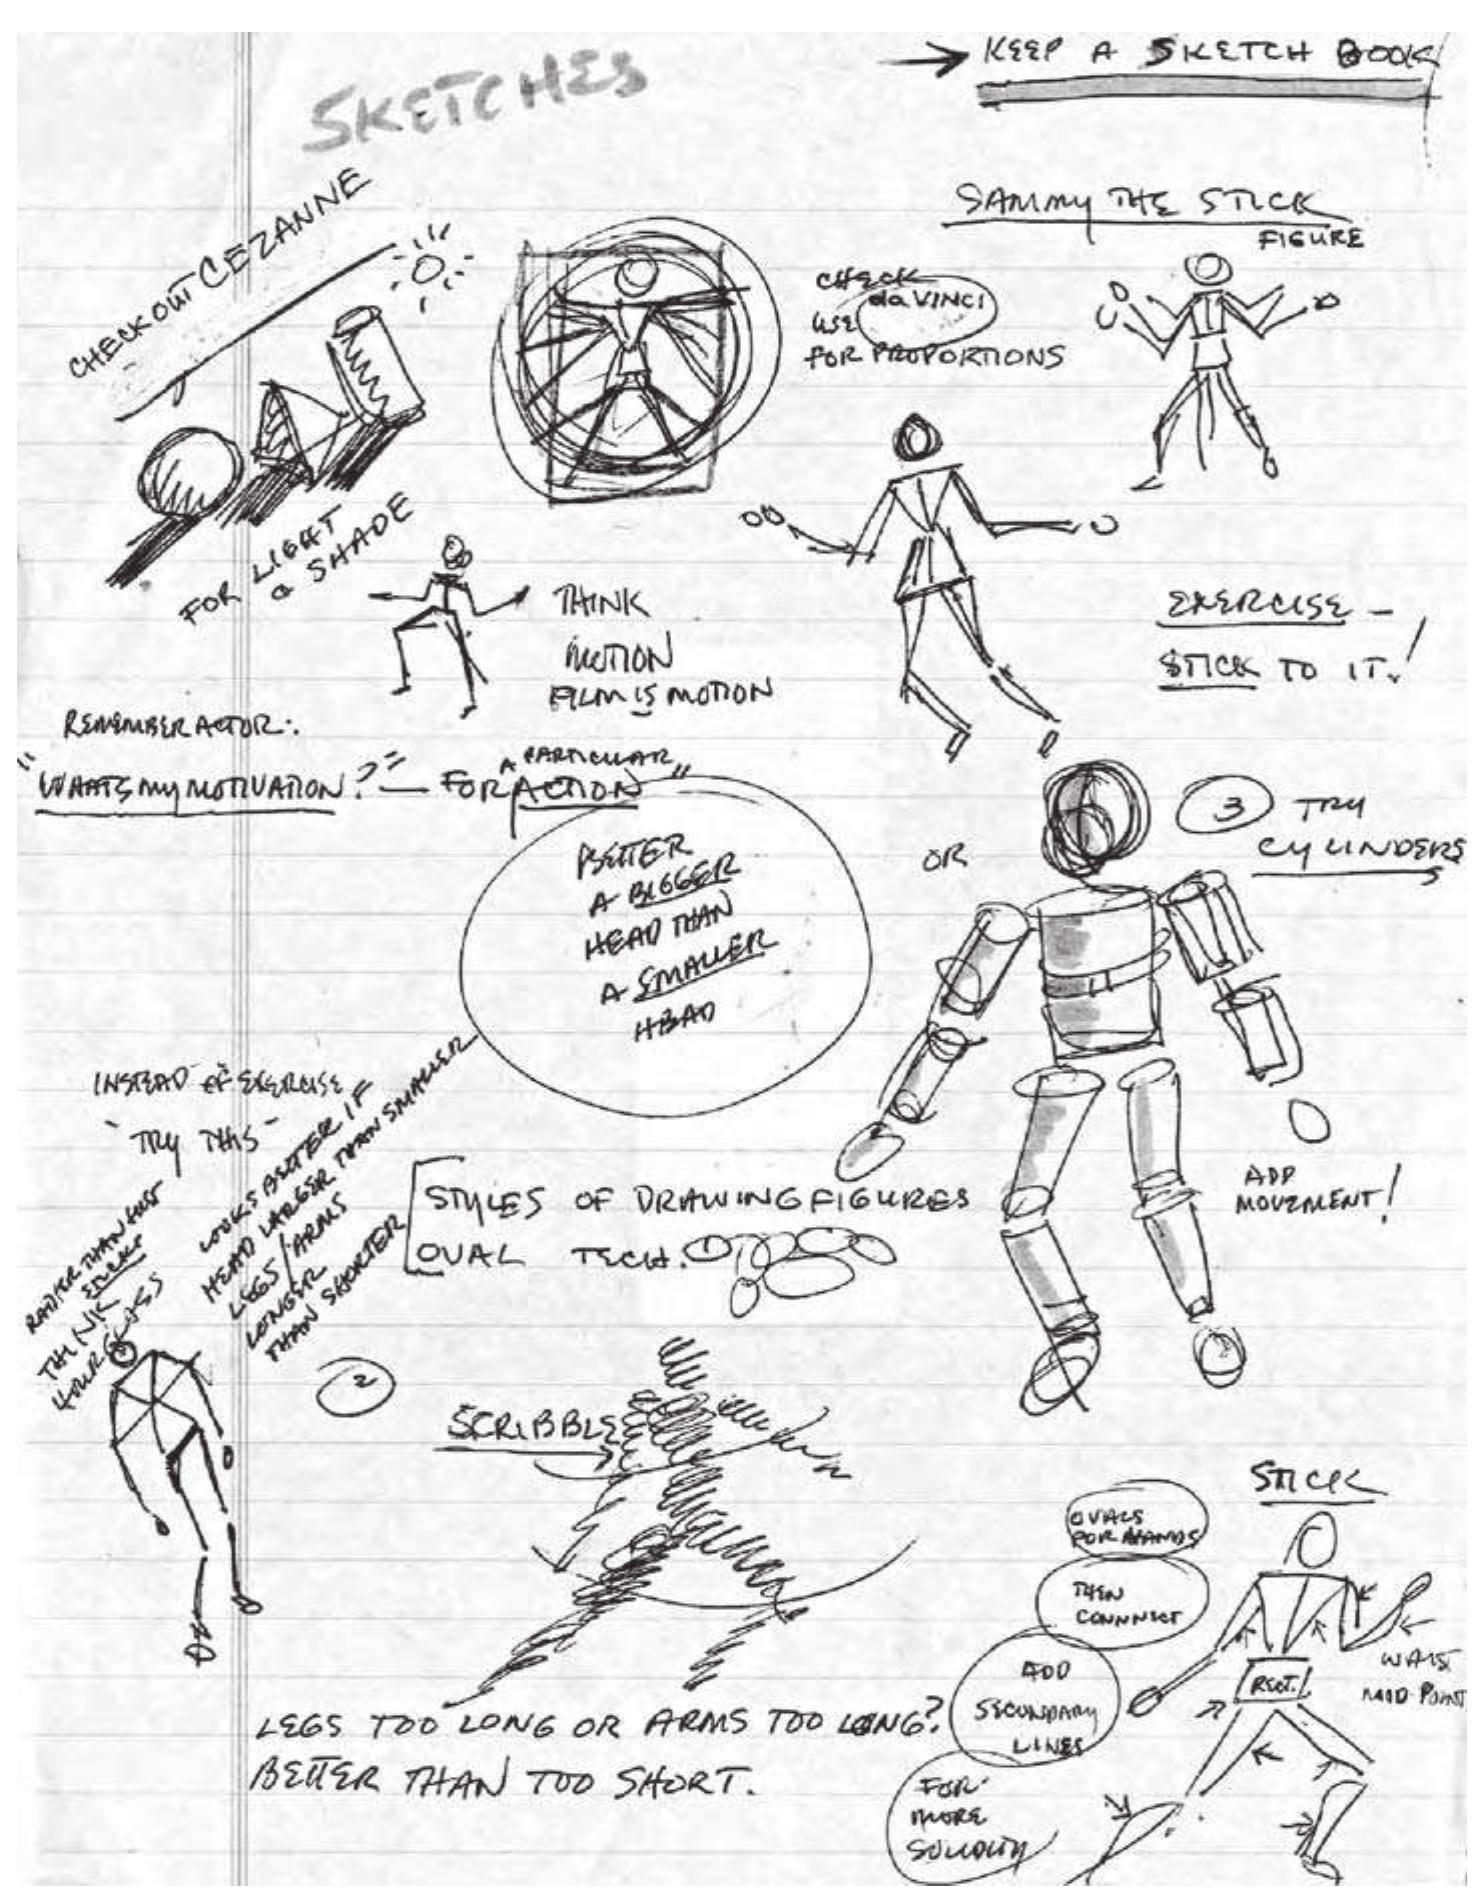 SKETCHES
→ KEEP A SKETCH BOOK
CHECKOUT CEZANNE
FOR LIGHT
& SHADE
CHECK
daVINCI
USE
FOR PROPORTIONS
SAMMY THE STICK
FIGURE
THINK
MOTION
FILM IS MOTION
EXERCISE –
STICK TO IT!
REMEMBER ACTOR:
"WHATS MY MOTIVATION?" — FOR A PARTICULAR ACTION"
BETTER
A BIGGER
HEAD THAN
A SMALLER
HEAD
OR
3 TRY
CYLINDERS
ADD
MOVEMENT!
INSTEAD OF EXERCISE
"TRY THIS"
RATHER THAN JUST
STICKS
THINK
HOUR GLASS
LOOKS BETTER IF
HEAD LARGER THAN SMALLER
LEGS/ARMS
LONGER
THAN SHORTER
STYLES OF DRAWING FIGURES
OVAL TECH. 1
2
SCRIBBLE
STICK
OVALS
FOR HANDS
THEN
CONNNECT
ADD
SECONDARY
LINES
FOR
MORE
SOLIDITY
RECT.
MID-POINT
LEGS TOO LONG OR ARMS TOO LONG?
BETTER THAN TOO SHORT.